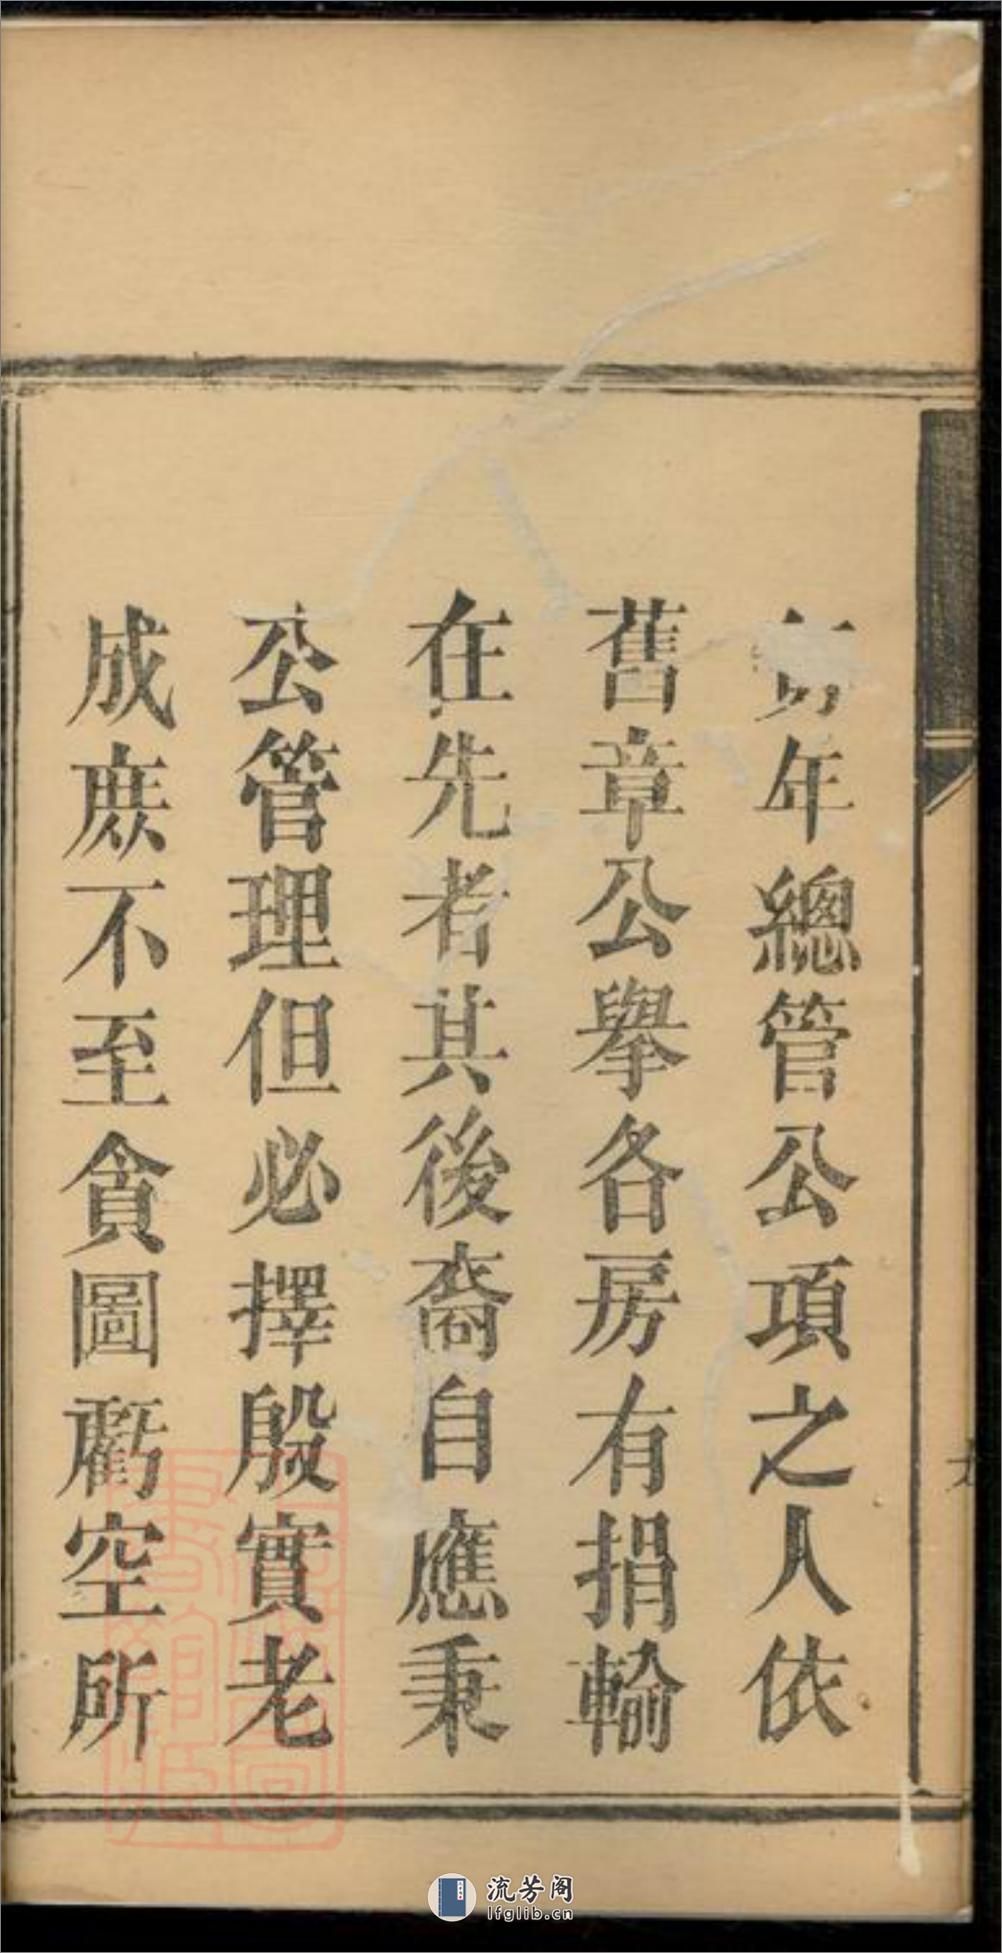 年總管公項之人依
舊章公舉各房有捐輸
在先者其後裔自應秉
公管理但必擇殷實老
成庶不至貪圖虧空所
流芳阁
lfglib.cn